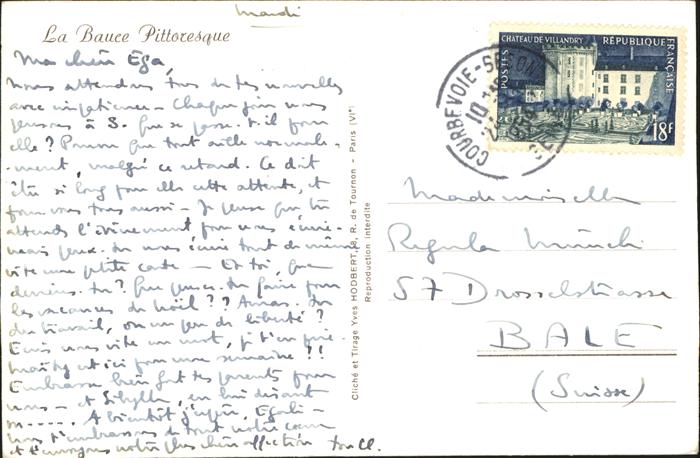 Mardi
La Bauce Pittoresque
Ma chère Ega,
nous attendons tous de tes nouvelles
avec impatience - Chaque jour nous
pensons à S. Que se passe-t-il pour
elle? Pourvu que tout aille normale-
ment, malgré ce retard. Ce doit
être si long pour elle cette attente, et
pour vous tous aussi - Je pense que tu
attends l'évènement pour nous écrire -
mais peux-tu nous écrire tout de même
vite une petite carte - Et toi, que
deviens-tu? Que penses-tu faire pour
les vacances de Noël?? Auras-tu
du travail, ou un peu de liberté?
Ecris nous vite un mot, je t'en prie.
est ici pour une semaine!!
Embrasse bien fort tes parents pour
nous - et Sibylle, en lui disant
m..... A bientôt j'espère,
nous t'embrassons de tout notre coeur
et t'envoyons notre plus chère affection
Cliché et Tirage Yves HODBERT, 8, R. de Tournon - Paris (VIe)
Reproduction interdite
CHATEAU DE VILLANDRY
RÉPUBLIQUE FRANÇAISE
POSTES
18F
COURBEVOIE - SEINE
Mademoiselle
Regula Münch
57 Drosselstrasse
BALE
(Suisse)